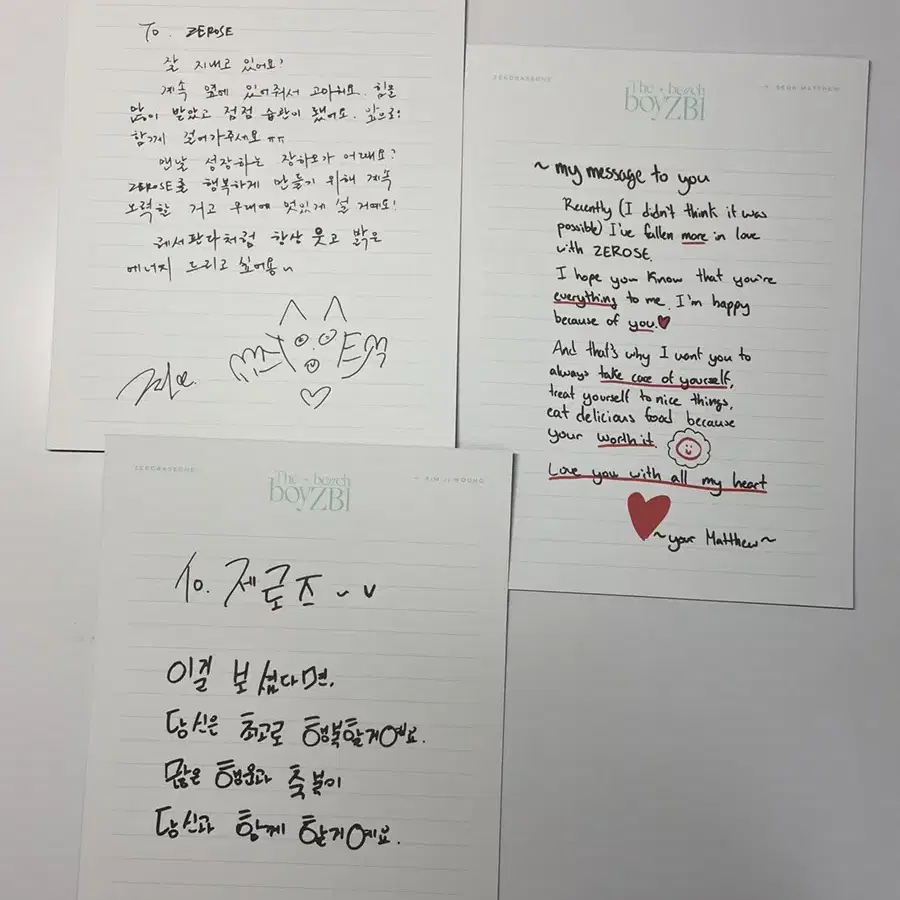 To. ZEROSE
잘 지내고 있어요?
계속 옆에 있어줘서 고마워요. 힘을
많이 받았고 점점 습관이 됐어요. 앞으로!
함께 걸어가주세요 ㅠㅠ
맨날 성장하는 장하오가 어때요?
ZEROSE를 행복하게 만들기 위해 계속
노력할 거고 무대에 멋있게 설 거예요!
레서판다처럼 항상 웃고 밝은
에너지 드리고 싶어용~
ZEROBASEONE
The beach boyZB1
SEOK MATTHEW
~ my message to you
Recently (I didn't think it was
possible) I've fallen more in love
with ZEROSE.
I hope you know that you're
everything to me. I'm happy
because of you.♥
And that's why I want you to
always take care of yourself,
treat yourself to nice things,
eat delicious food because
your worth it.
Love you with all my heart
~your Matthew~
ZEROBASEONE
The beach boyZB1
KIM JI WOONG
To. 제로즈
이걸 보셨다면,
당신은 최고로 행복할거예요.
많은 행운과 축복이
당신과 함께 할거예요.